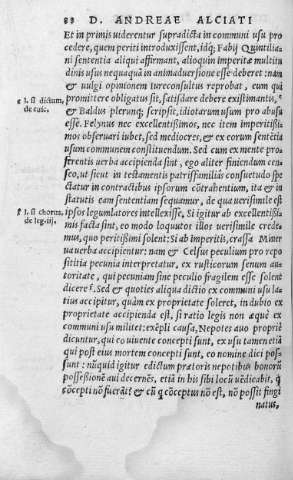 88 D. ANDREAE ALCIATI
Et in primis uiderentur supradicta in communi usu pro
cedere, quem periti introduxissent, idq; Fabij Quintilia
ni sententia aliqui affirmant, alioquin imperitæ multitu
dinis usus nequaquã in animaduersione esse deberet: nam
& uulgi opinionem iureconsultus reprobat, cum qui
e l. si dictum. promittere obligatus sit, satisdare debere existimantis, e
de euic. & Baldus plerunq; scripsit, idiotarum usum pro abusu
esse. Felynus nec excellentissimos, nec item imperitissi-
mos obseruari iubet, sed mediocres, & ex eorum sententia
usum communem constituendum. Sed cum ex mente pro-
ferentis uerba accipienda sint, ego aliter finiendum cen-
seo, ut sicut in testamentis patrissamiliâs consuetudo spe
ctatur in contractibus ipsorum cõtrahentium, ita & in
statutis eam sententiam sequamur, de qua uerisimile est
f l. si chorus. ipsos legumlatores intellexisse, Si igitur ab excellẽtissi-
de leg. iij. mis facta sint, eo modo loquutos illos uerisimile credi-
mus, quo peritissimi solent: Si ab imperitis, crassa Miner
ua uerba accipientur; nam & Celsus peculium pro repo
stitia pecunia interpretatur, ex rusticorum senum au-
toritate, qui pecuniam sine peculio fragilem esse solent
dicere f. Sed & quoties aliqua dictio ex communi usu la-
tius accipitur, quàm ex proprietate soleret, in dubio ex
proprietate accipienda est, si ratio legis non æquè ex
communi usu militet: exẽpli causa, Nepotes auo propriè
dicuntur, qui eo uiuente concepti sunt, ex usu tamen etiã
qui post eius mortem concepti sunt, eo nomine dici pos-
sunt: nũquid igitur edictum prætoris nepotibus bonorũ
possessionẽ aui decernẽs, etiã in his sibi locũ uẽdicabit, q
cõcepti nõ fuerãt? & cũ q cõceptus nõ est, nõ possit fingi
natus,